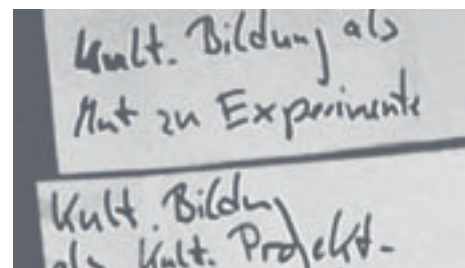 Kult. Bildung als
Mut zu Experimente
Kult. Bildung
als Kult. Projekt-